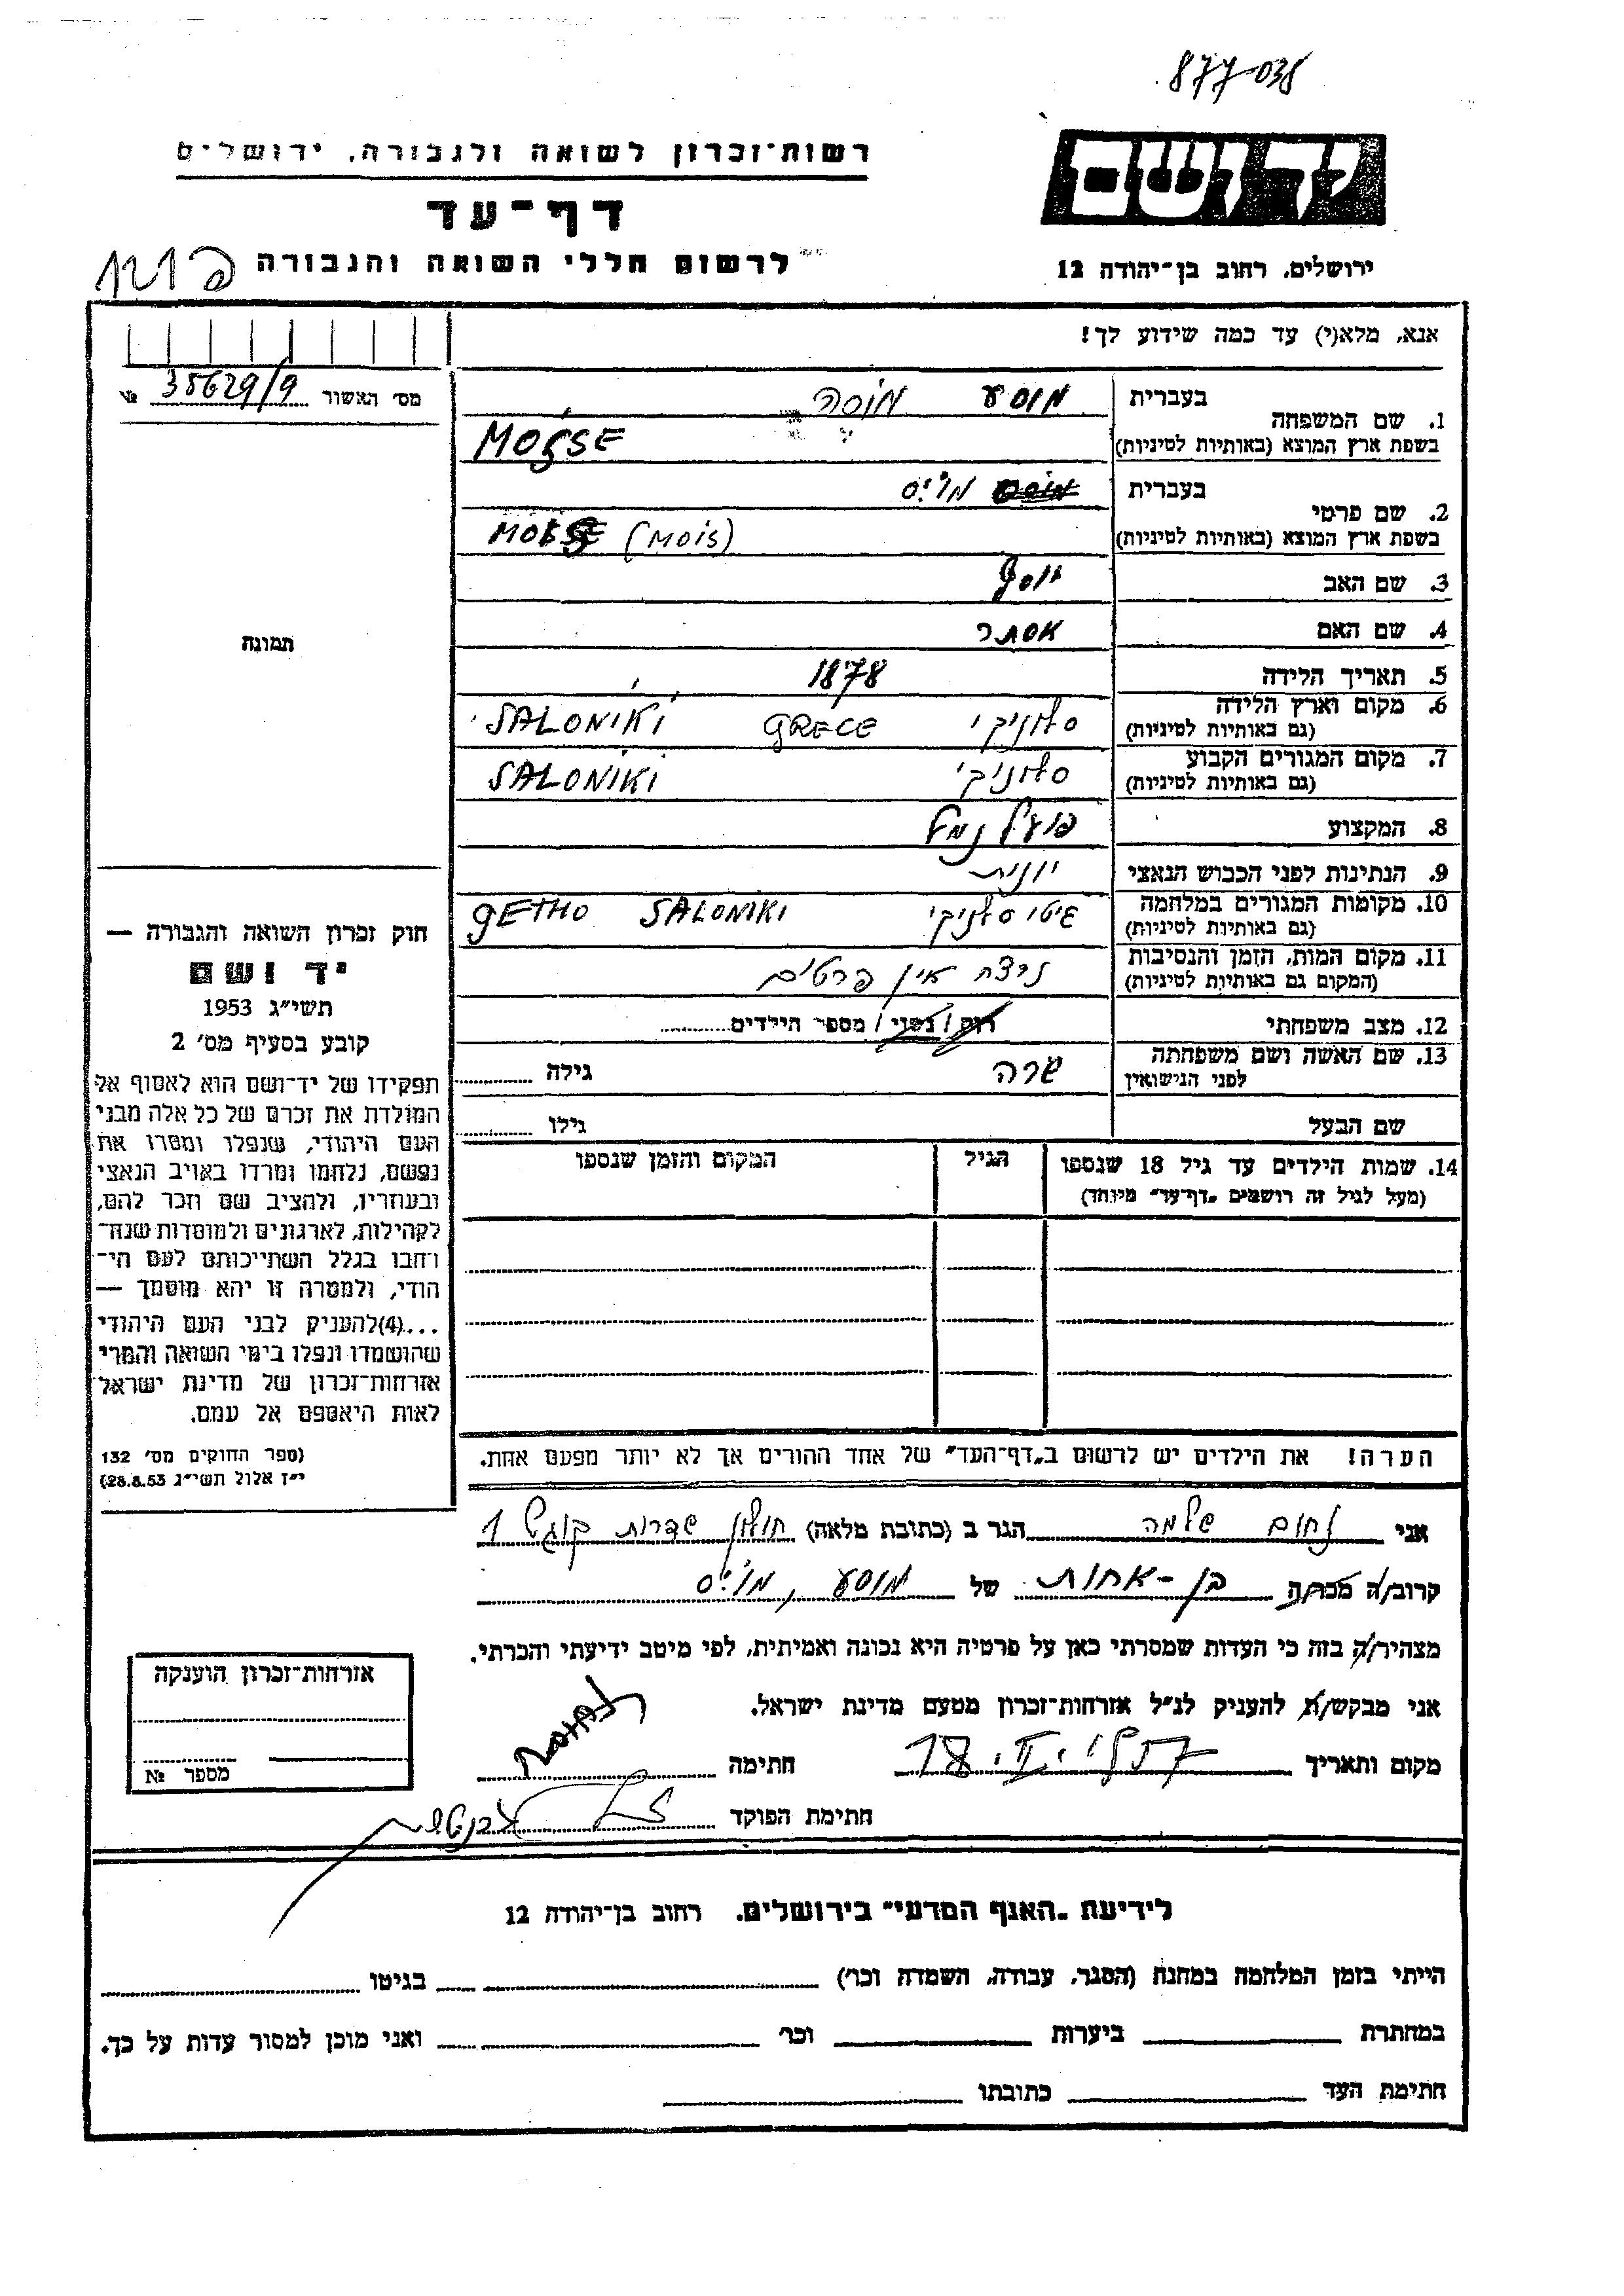 877-038
יד ושם
רשות־זכרון לשואה ולגבורה, ירושלים
דף־עד
לרשום חללי השואה והגבורה
ירושלים, רחוב בן־יהודה 12
אנא, מלא(י) עד כמה שידוע לך!
מס׳ האשור 35629/9 №
תמונה
1. שם המשפחה
בעברית מוסע מוסה
בשפת ארץ המוצא (באותיות לטיניות) MOSSE
2. שם פרטי
בעברית מויס
בשפת ארץ המוצא (באותיות לטיניות) (MOÏS)
3. שם האב יוסף
4. שם האם אסתר
5. תאריך הלידה 1878
6. מקום וארץ הלידה סלוניקי GRECE SALONIKI
(גם באותיות לטיניות)
7. מקום המגורים הקבוע סלוניקי SALONIKI
(גם באותיות לטיניות)
8. המקצוע פועל נמל
9. הנתינות לפני הכבוש הנאצי יוונית
10. מקומות המגורים במלחמה גיטו סלוניקי GETHO SALONIKI
(גם באותיות לטיניות)
11. מקום המות, הזמן והנסיבות נרצח אין פרטים
(המקום גם באותיות לטיניות)
12. מצב משפחתי רווק / נשוי / מספר הילדים
13. שם האשה ושם משפחתה שרה גילה
לפני הנישואין
שם הבעל גילו
14. שמות הילדים עד גיל 18 שנספו הגיל המקום והזמן שנספו
(מעל לגיל זה רושמים „דף־עד״ מיוחד)
הערה! את הילדים יש לרשום ב„דף־העד״ של אחד ההורים אך לא יותר מפעם אחת.
חוק זכרון השואה והגבורה —
יד ושם
תשי״ג 1953
קובע בסעיף מס׳ 2
תפקידו של יד־ושם הוא לאסוף אל
המולדת את זכרם של כל אלה מבני
העם היהודי, שנפלו ומסרו את
נפשם, נלחמו ומרדו באויב הנאצי
ובעוזריו, ולהציב שם וזכר להם,
לקהילות, לארגונים ולמוסדות שנח־
רבו בגלל השתייכותם לעם הי־
הודי, ולמטרה זו יהא מוסמך —
...(4) להעניק לבני העם היהודי
שהושמדו ונפלו בימי השואה והמרי
אזרחות־זכרון של מדינת ישראל
לאות היאספם אל עמם.
(ספר החוקים מס׳ 132
י״ז אלול תשי״ג 28.8.53)
אני נחום שלמה הגר ב (כתובת מלאה) חולון שדרות קוגל 1
קרוב/ה מכר/ה בן-אחות של מוסע, מויס
מצהיר/ה בזה כי העדות שמסרתי כאן על פרטיה היא נכונה ואמיתית, לפי מיטב ידיעתי והכרתי.
אני מבקש/ת להעניק לנ״ל אזרחות־זכרון מטעם מדינת ישראל.
מקום ותאריך חתימה
חתימת הפוקד
אזרחות־זכרון הוענקה
מספר №
לידיעת „האגף המדעי״ בירושלים, רחוב בן־יהודה 12
הייתי בזמן המלחמה במחנה (הסגר, עבודה, השמדה וכו׳) בגיטו
במחתרת ביערות וכו׳ ואני מוכן למסור עדות על כך.
חתימת העד כתובתו